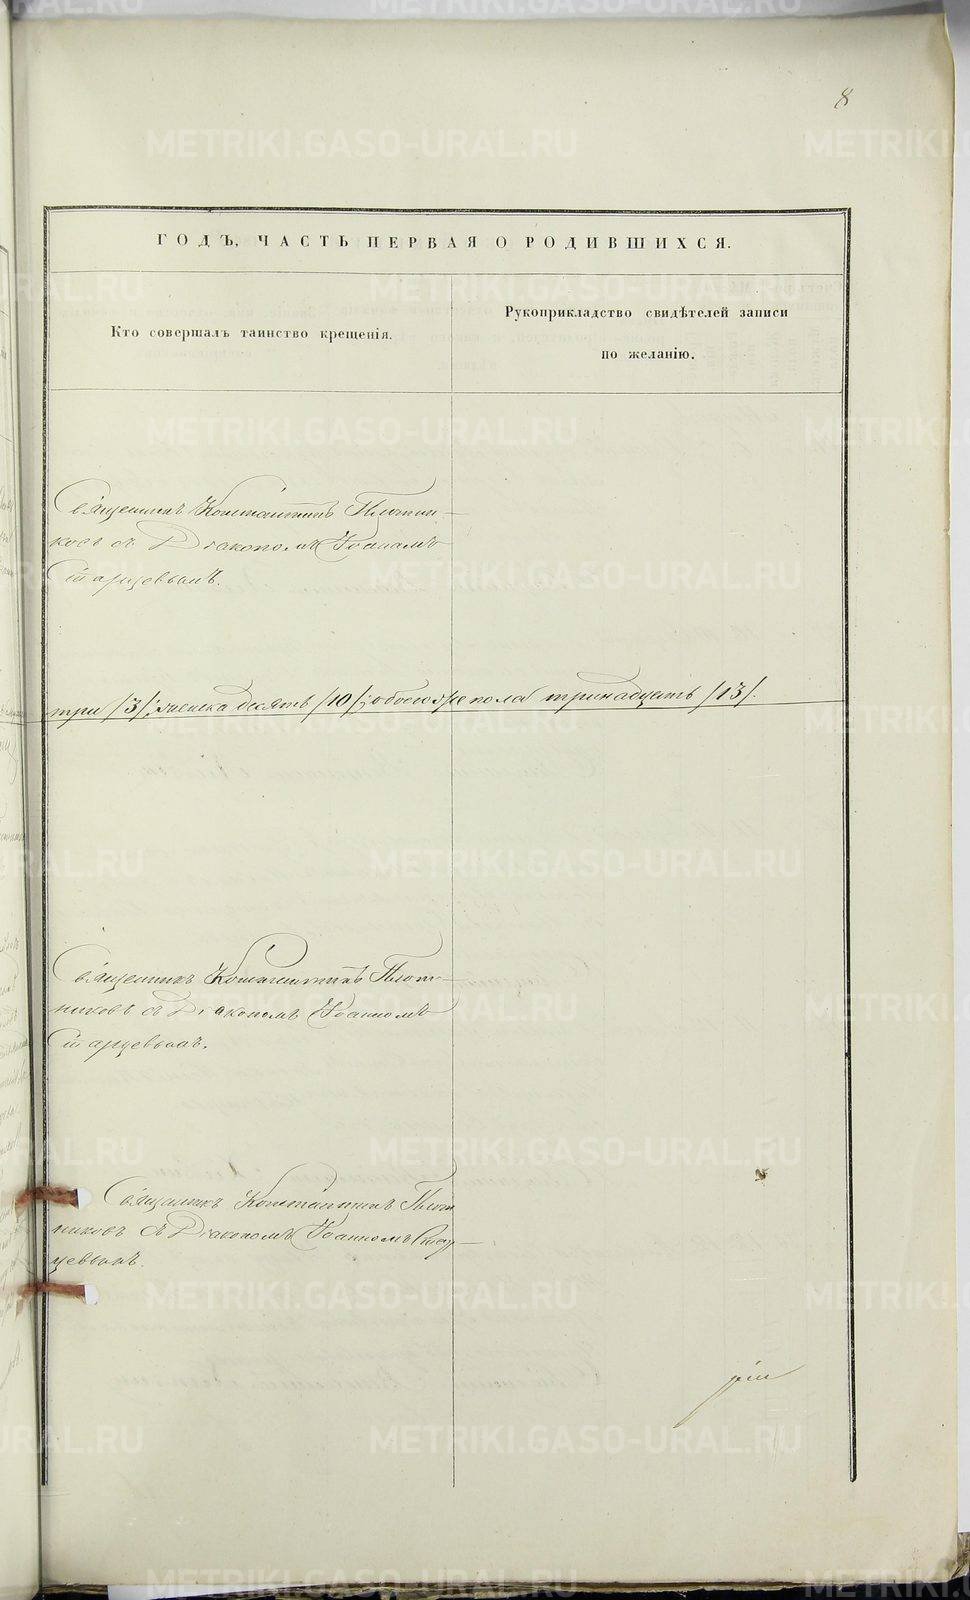 8
ГОДЪ, ЧАСТЬ ПЕРВАЯ О РОДИВШИХСЯ.
Кто совершалъ таинство крещенія.
Рукоприкладство свидѣтелей записи
по желанію.
Священникъ Константинъ Плотни-
ковъ съ Діакономъ Іоанномъ
Старцевымъ.
три /3/; женска десять /10/; обоего же пола тринадцать /13/.
Священникъ Константинъ Плот-
никовъ съ Діакономъ Іоанномъ
Старцевымъ.
Священникъ Константинъ Плот
никовъ съ Діакономъ Іоанномъ Стар-
цевымъ.
METRIKI.GASO-URAL.RU